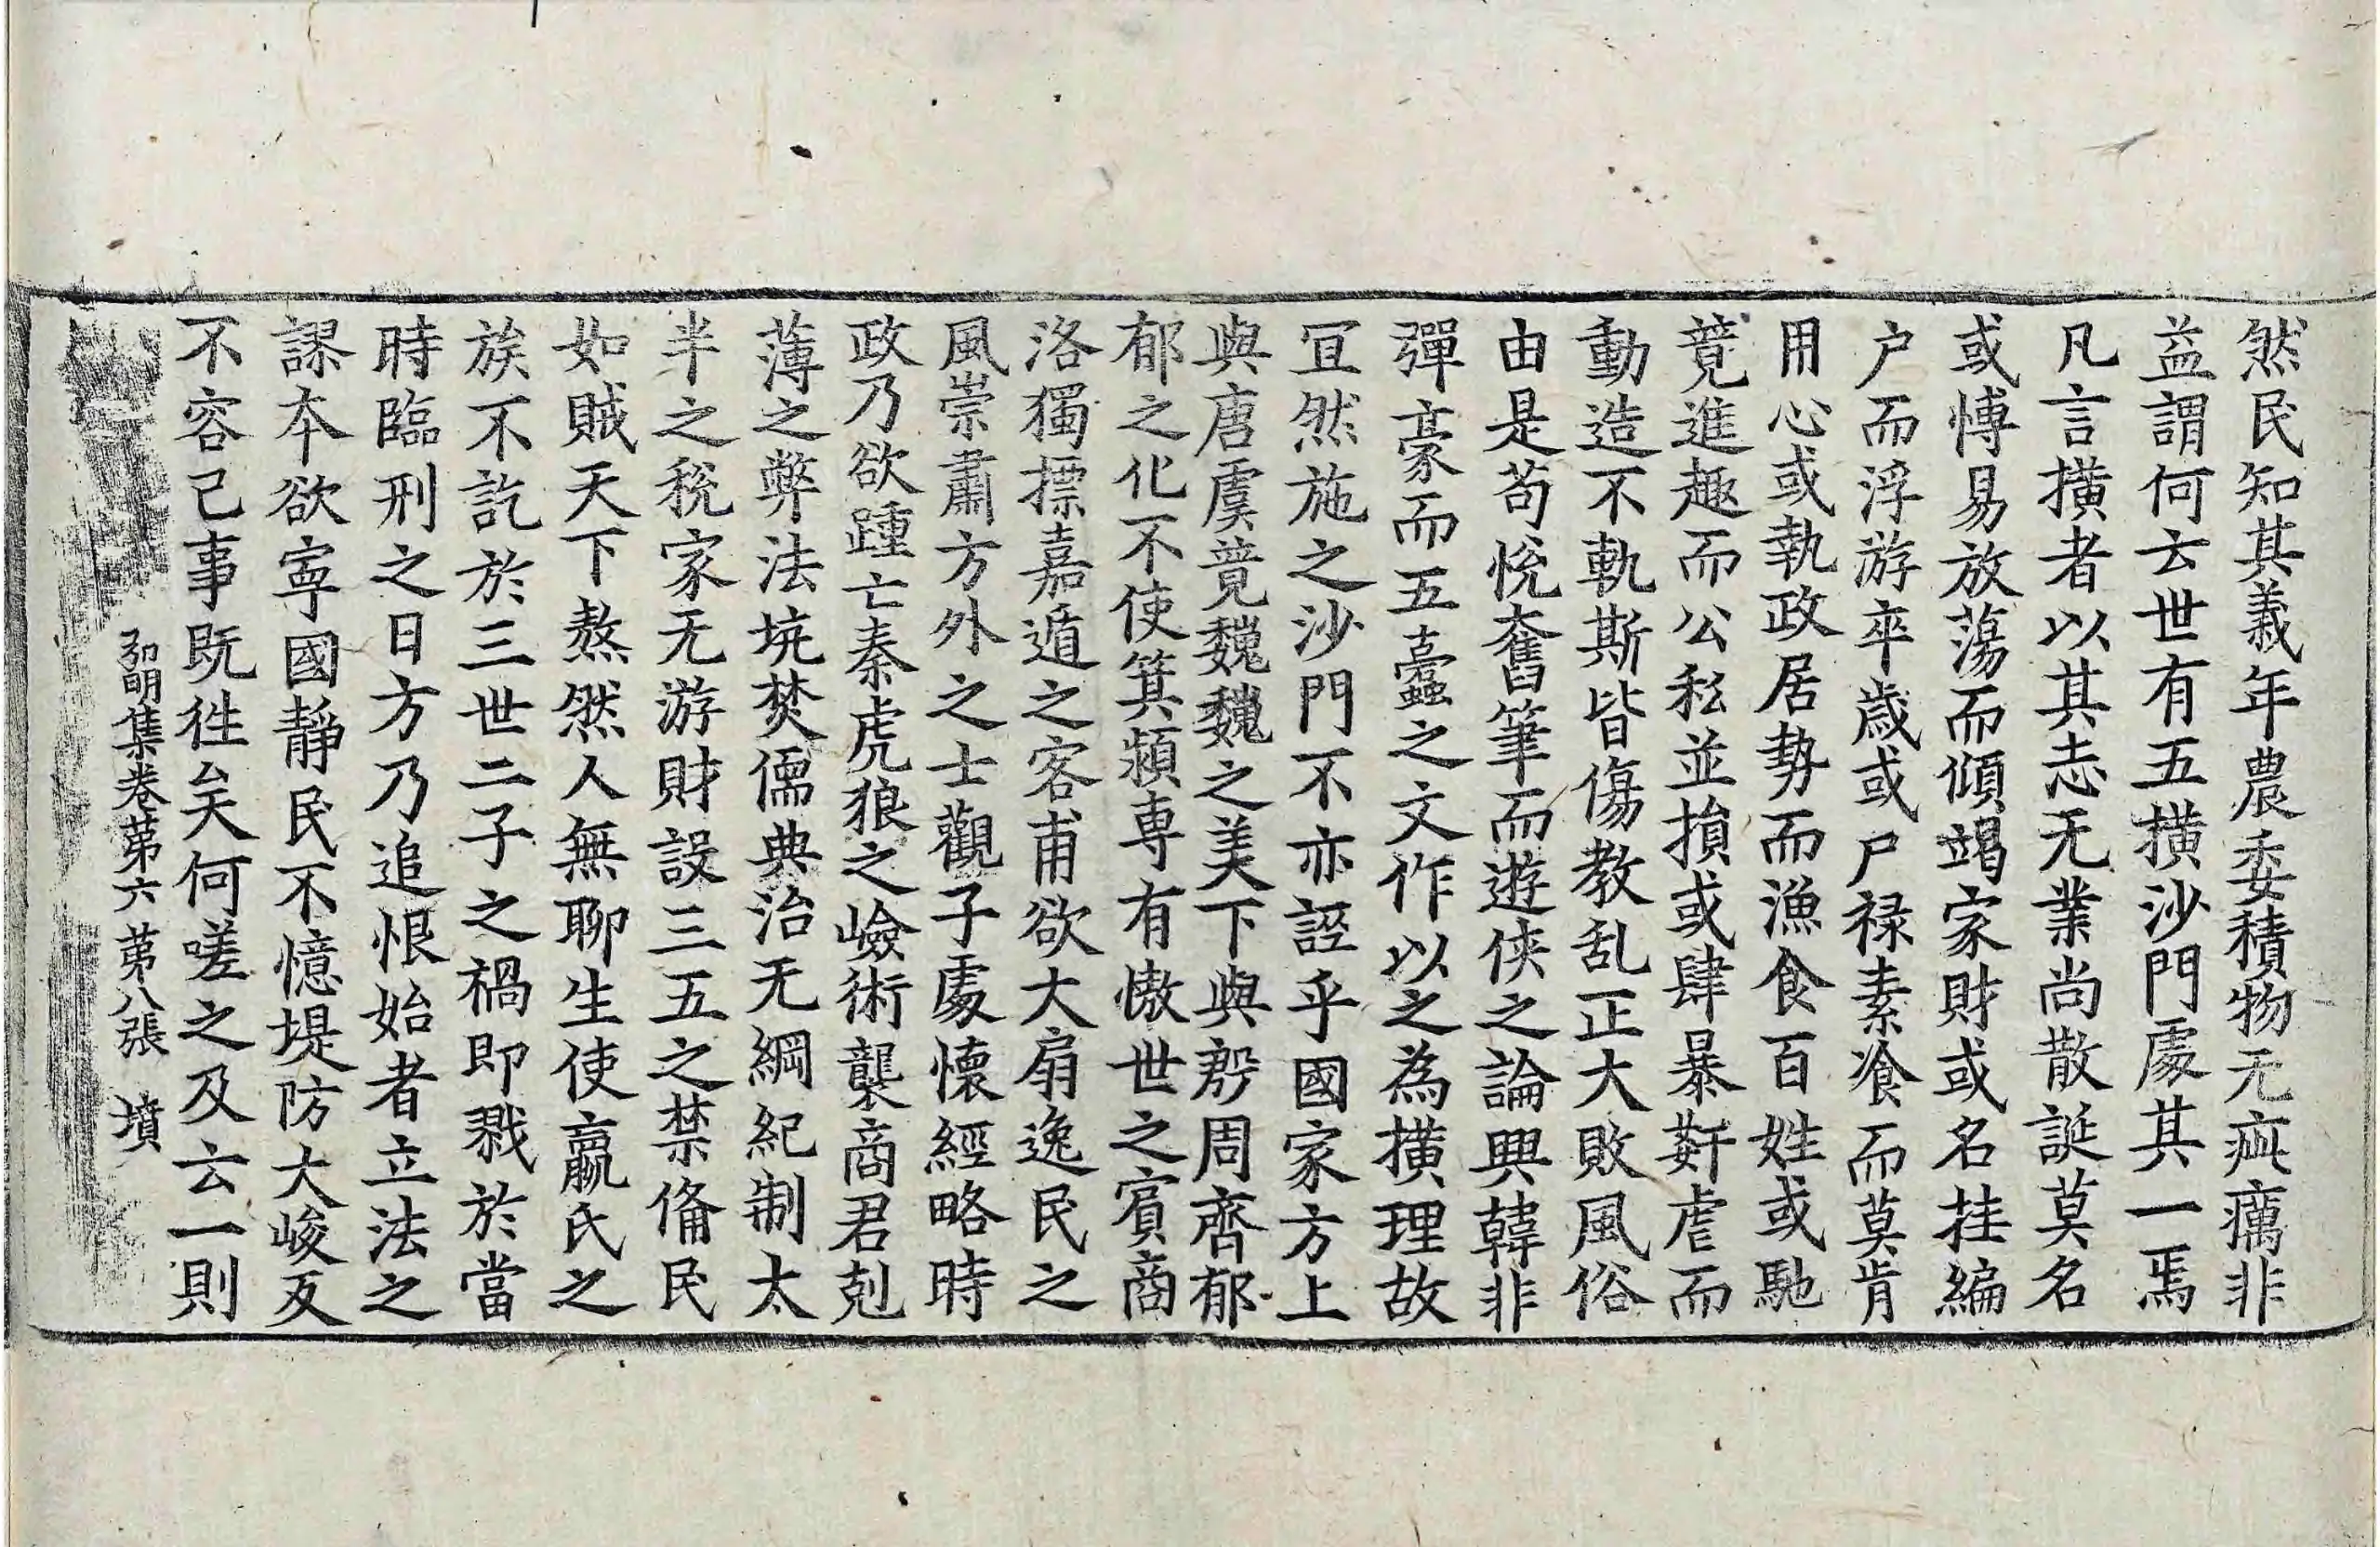 然民知其義年農委積物无疵癘非
益謂何云世有五橫沙門處其一焉
凡言橫者以其志无業尚散誕莫名
或愽易放蕩而傾竭家財或名挂編
户而浮游卒歲或尸禄素飡而莫肯
用心或執政居勢而漁食百姓或馳
竟進趣而公私並損或肆暴姧虐而
動造不軌斯皆傷教乱正大敗風俗
由是苟悅奮筆而遊俠之論興韓非
彈豪而五蠹之文作以之為橫理故
冝然施之沙門不亦誣乎國家方上
與唐虞竟魏魏之美下與殷周齊郁
郁之化不使箕潁專有慠世之賔商
洛獨摽嘉遁之客甫欲大扇逸民之
風崇肅方外之士觀子處懷經略時
政乃欲踵亡秦虎狼之嶮術襲商君剋
薄之弊法坑焚儒典治无綱紀制太
半之稅家无游財設三五之禁俻民
如賊天下熬然人無聊生使嬴氏之
族不訖於三世二子之禍即戮於當
時臨刑之日方乃追恨始者立法之
謬本欲寧國靜民不憶堤防大峻反
不容己事既徃矣何嗟之及云一則
弘明集卷第六 第八張 墳